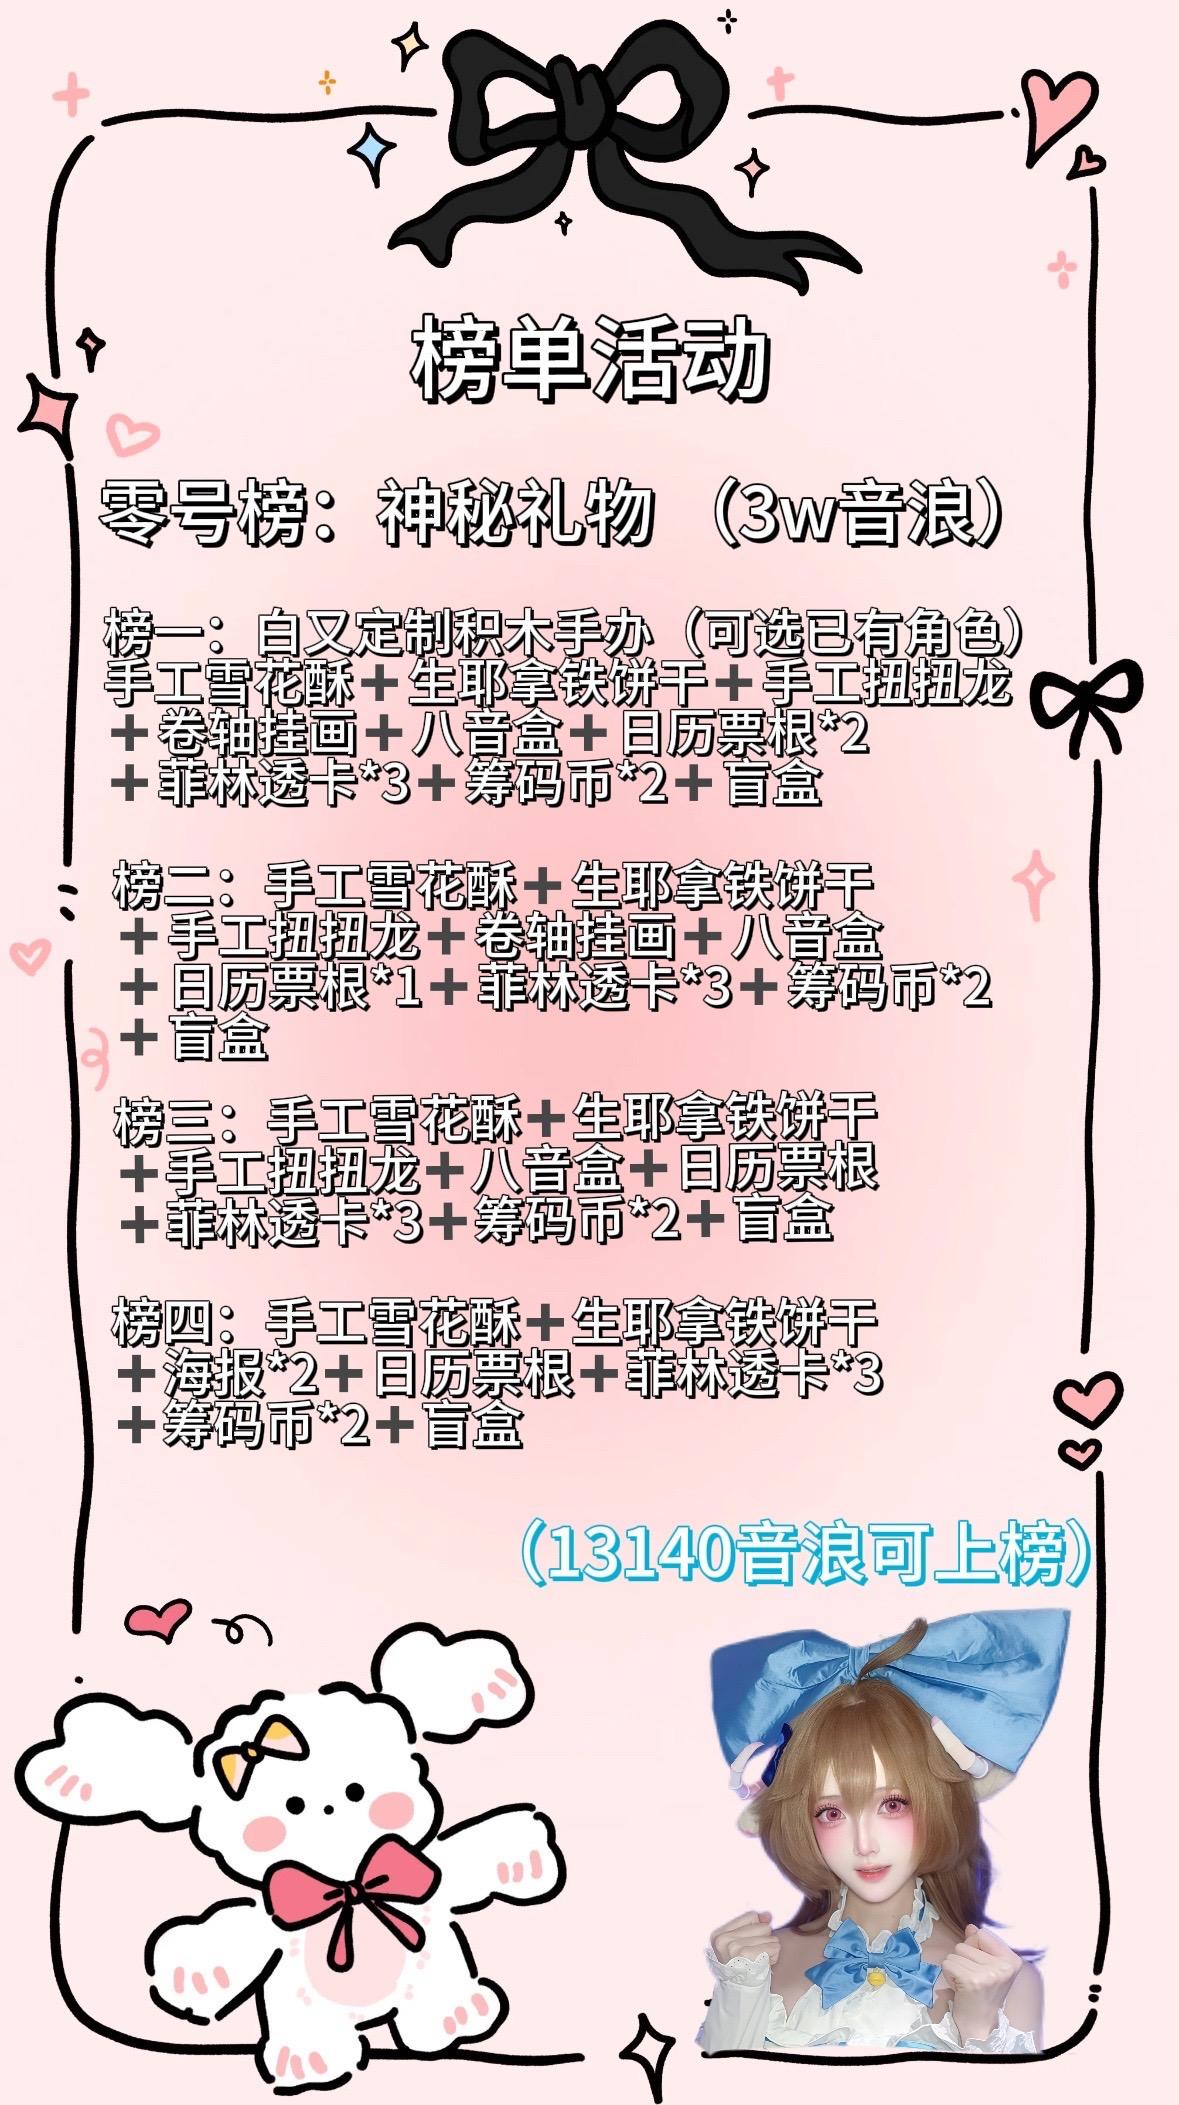 榜单活动
零号榜：神秘礼物 （3w音浪）
榜一：白又定制积木手办（可选已有角色）
手工雪花酥➕生耶拿铁饼干➕手工扭扭龙
➕卷轴挂画➕八音盒➕日历票根*2
➕菲林透卡*3➕筹码币*2➕盲盒
榜二：手工雪花酥➕生耶拿铁饼干
➕手工扭扭龙➕卷轴挂画➕八音盒
➕日历票根*1➕菲林透卡*3➕筹码币*2
➕盲盒
榜三：手工雪花酥➕生耶拿铁饼干
➕手工扭扭龙➕八音盒➕日历票根
➕菲林透卡*3➕筹码币*2➕盲盒
榜四：手工雪花酥➕生耶拿铁饼干
➕海报*2➕日历票根➕菲林透卡*3
➕筹码币*2➕盲盒
（13140音浪可上榜）